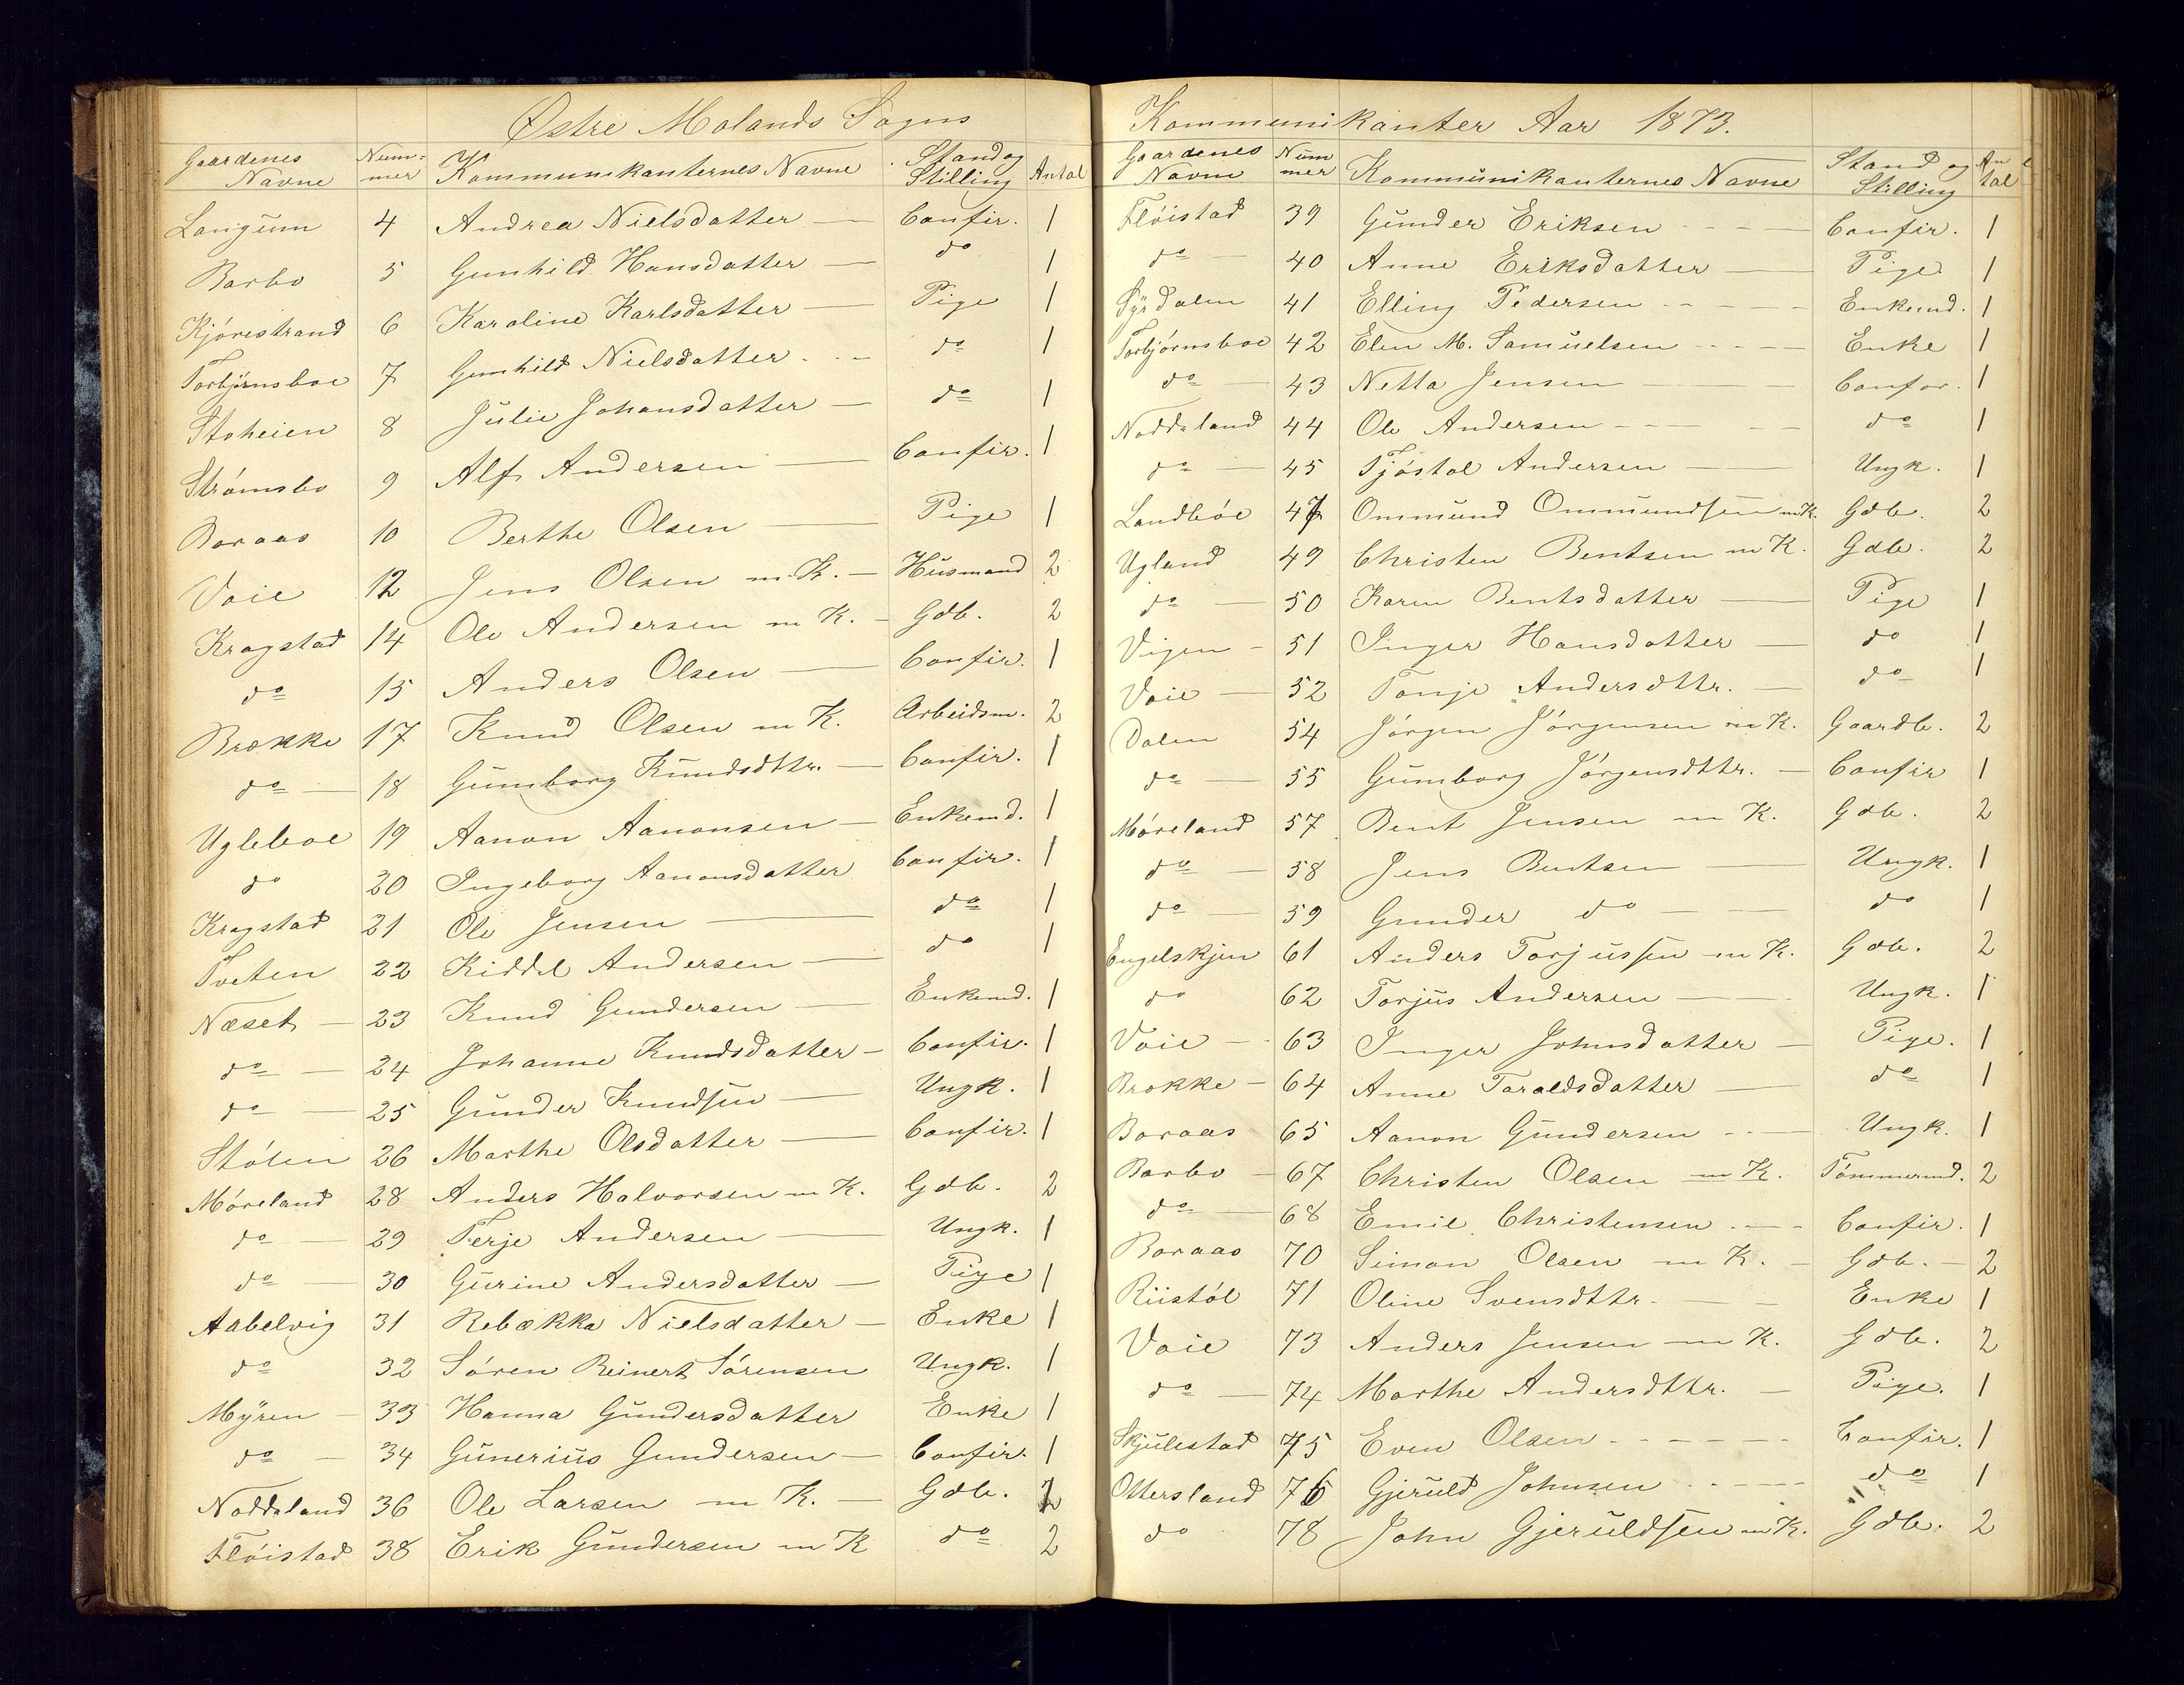 Østre Molands Sogns
Gaardenes Navne Num-mer Kommunikanternes Navne Stand og Stilling Antal
Langum 4 Andrea Nielsdatter — Confir. 1
Barbo 5 Gunhild Hansdatter — do 1
Kjórestrand 6 Karoline Karlsdatter — Pige 1
Torbjórnsboe 7 Gunhild Nielsdatter - - - do 1
Stoheien 8 Julie Johansdatter — do 1
Strómsbo 9 Alf Andersen — Confir. 1
Boraas 10 Berthe Olsen — Pige 1
Voie 12 Jens Olsen m. K. — Husmand 2
Kragstad 14 Ole Andersen m K. - Gdb. 2
do 15 Anders Olsen — Confir. 1
Brække 17 Knud Olsen m K. Arbeidsm. 2
do — 18 Gumborg Knudsdttr. — Confir. 1
Ugleboe 19 Aanon Aanonsen — Enkemd. 1
do 20 Ingeborg Aanonsdatter Confir. 1
Kragstad 21 Ole Jensen — do 1
Tveten 22 Kiddel Andersen — do 1
Næset — 23 Knud Gundersen — Enkemd. 1
do — 24 Johanne Knudsdatter — Confir. 1
do — 25 Gunder Knudsen — Ungk. 1
Stólen 26 Marthe Olsdatter — Confir. 1
Móreland 28 Anders Halvorsen m K. Gdb. 2
do — 29 Terje Andersen — Ungk. 1
do — 30 Gurine Andersdatter — Pige 1
Aabelvig 31 Rebækka Nielsdatter — Enke 1
do 32 Sóren Reinert Sórensen Ungk. 1
Myren — 33 Hanna Gundersdatter Enke 1
do — 34 Gunerius Gundersen — Confir. 1
Noddeland 36 Ole Larsen m K. — Gdb. 2
Flóistad 38 Erik Gundersen m K do 2
Kommunikanter Aar 1873.
Gaardenes Navne Num mer Kommunikanternes Navne Stand og Stilling An tal
Flóistad 39 Gunder Eriksen - - — Confir. 1
do — 40 Anne Eriksdatter — Pige 1
41 Elling Pedersen - - — Enkemd. 1
Torbjórnsboe 42 Elen M. Samuelsen - - — Enke 1
do — 43 Netta Jensen — Confor. 1
Noddeland 44 Ole Andersen - - — do 1
do — 45 Tjóstol Andersen — Ungk. 1
Landbóe 47 Ommund Ommundsen m K. Gdb. 2
Ugland 49 Christen Bentsen m K. Gdb. 2
do — 50 Karen Bentsdatter — Pige 1
Vigen - 51 Inger Hansdatter — do 1
Voie — 52 Tonje Andersdttr. — do 1
Dalen 54 Jórgen Jórgensen m K. Gaardb. 2
do — 55 Gumborg Jórgensdttr. — Confir 1
Móreland 57 Bent Jensen m K. Gdb. 2
do — 58 Jens Bentsen — Ungk. 1
do — 59 Gunder do — do 1
Engelskjen 61 Anders Torjussen m K. Gdb. 2
do 62 Torjus Andersen — Ungk. 1
Voie — 63 Inger Johnsdatter — Pige. 1
Brække - 64 Anne Taraldsdatter — do 1
Boraas 65 Aanon Gundersen - - — Ungk. 1
Barbo — 67 Christen Olsen m K. Tómmermd. 2
do — 68 Emil Christensen . — Confir. 1
Boraas 70 Simon Olsen m K. - Gdb. - 2
Riistól 71 Oline Svensdttr. — Enke 1
Voie 73 Anders Jensen m K. Gdb. 2
do — 74 Marthe Andersdttr. — Pige. 1
Skjulestad 75 Even Olsen - - - - Confir. 1
Ottersland 76 Gjeruld Johnsen - - - - do 1
do 78 John Gjeruldsen m K. Gdb. 2